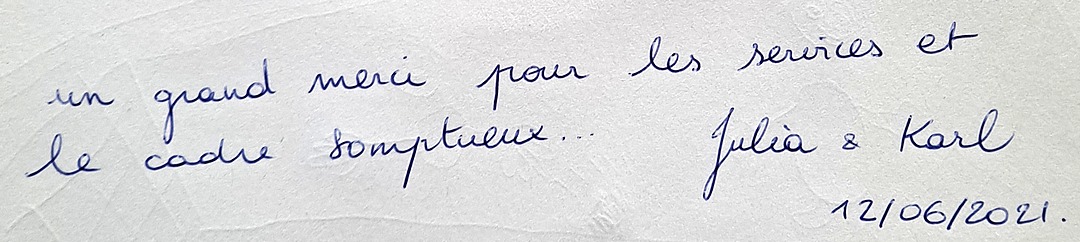 un grand merci pour les services et
le cadre somptueux... Julia & Karl
12/06/2021.